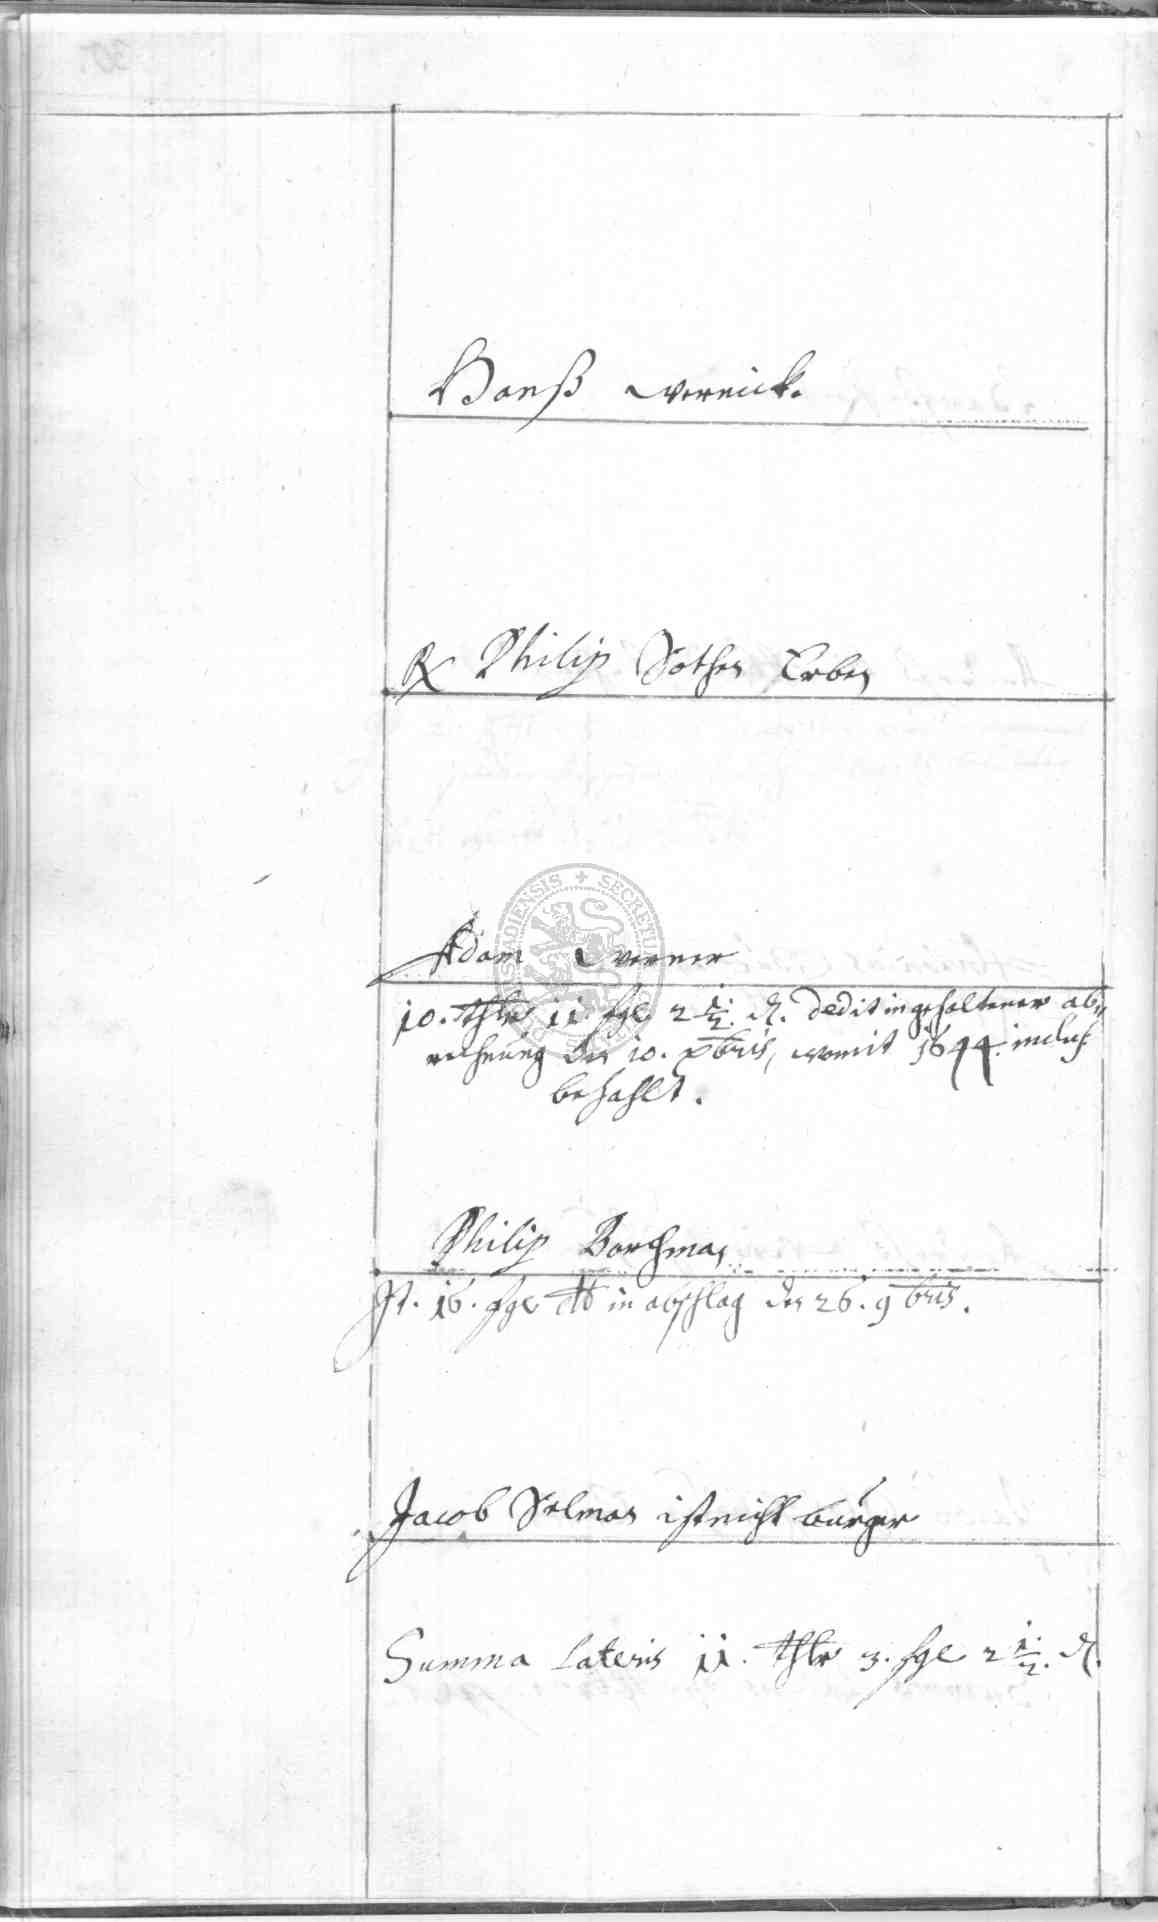 Hanß Wernick.
Rx Philip Sothen Erben
Adam Werner
10. thlr 11 sgl 2 1/2. d. dedit in gehaltener ab,,
rechnung den 10. Xbris, womit 1644. inclus.
bezahlt.
Philip Borchman
Jt. 16. sgl in abschlag den 26. 9bris.
Jacob Selman ist nicht bürger
Summa Lateris 11. thlr 3. sgl 2 1/2. d.
SECRETU
ADIENSIS